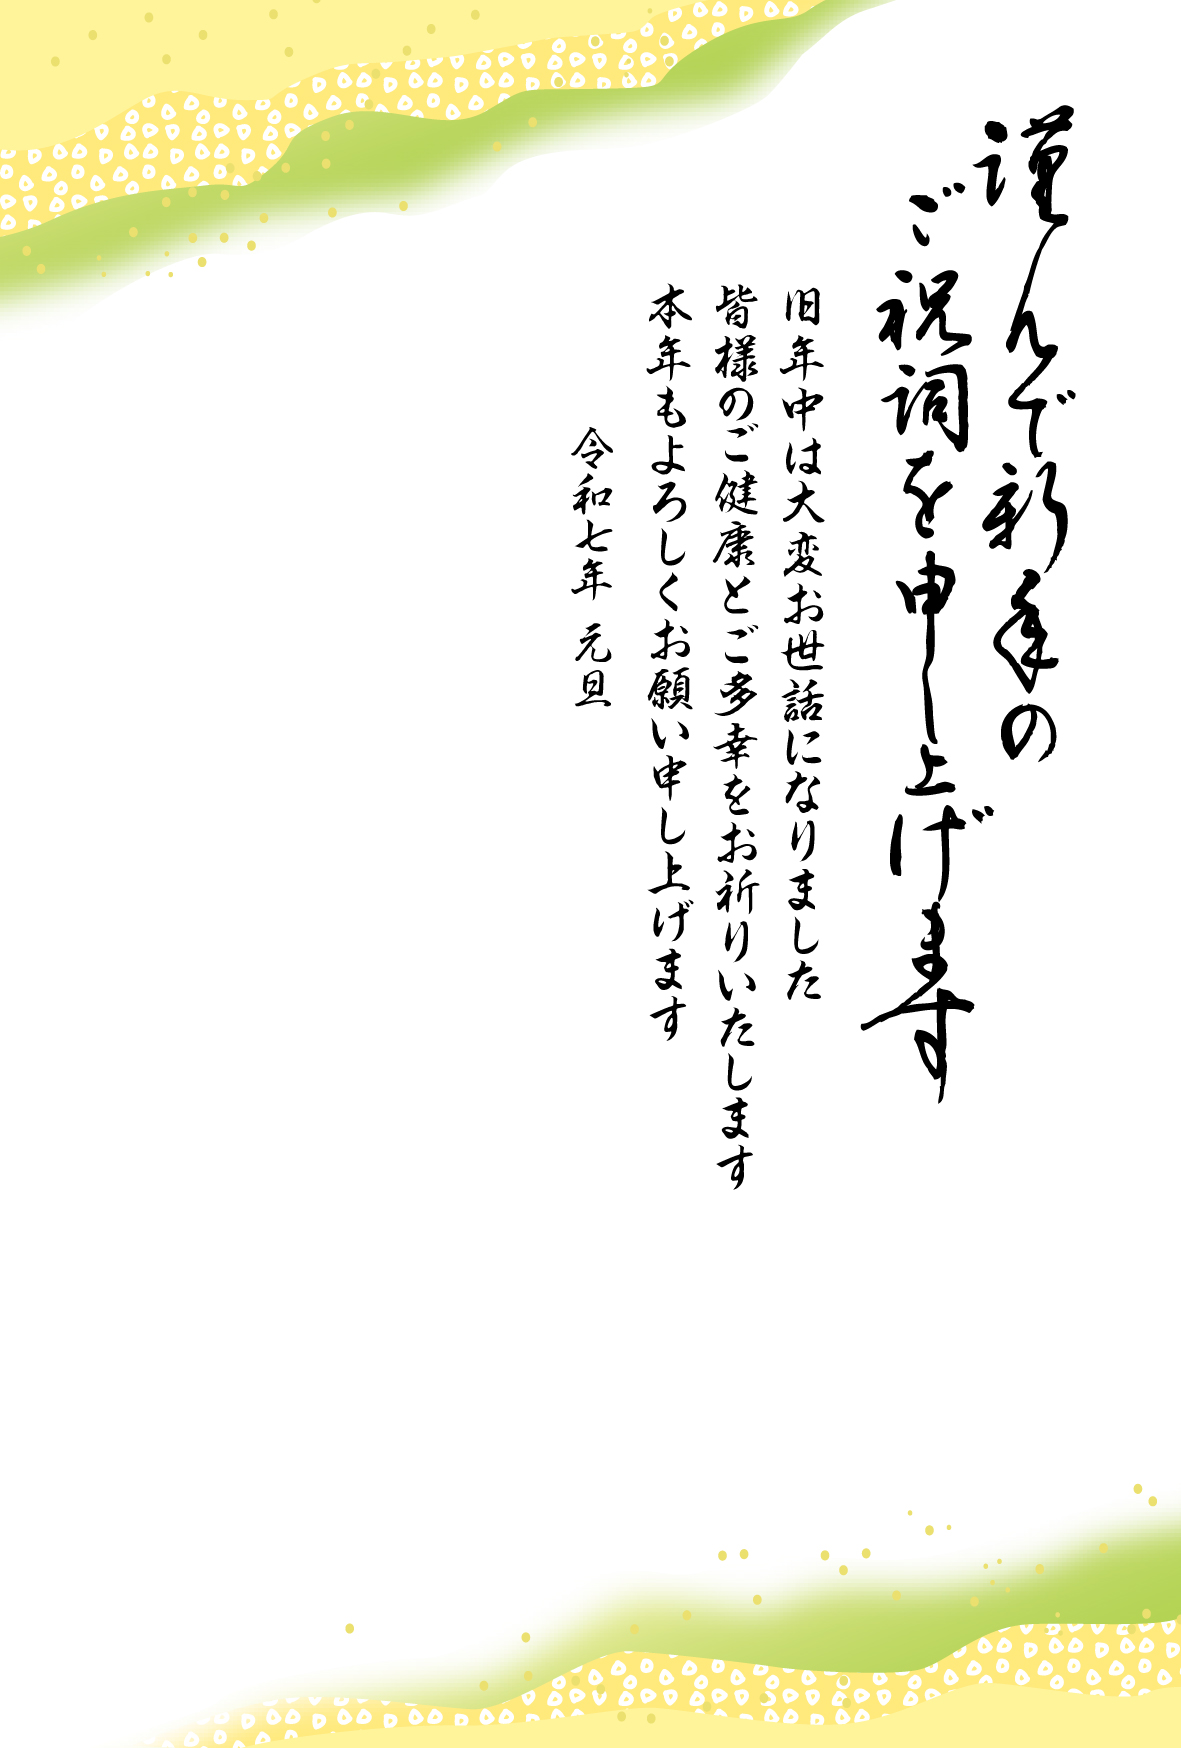 謹んで新年の
ご祝詞を申し上げます
旧年中は大変お世話になりました
皆様のご健康とご多幸をお祈りいたします
本年もよろしくお願い申し上げます
令和七年 元旦